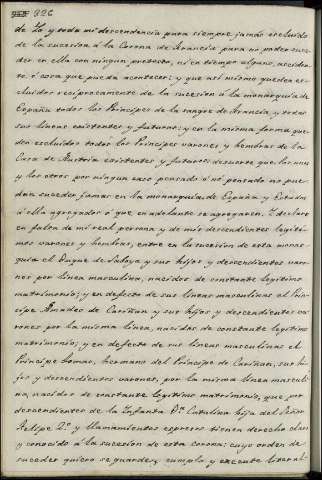 226
do Yo y toda mi descendencia para siempre jamas excluido
de la sucesion á la Corona de Francia para no poder suce-
der en ella con ningun pretexto, ni en tiempo alguno, acciden-
te, ó cosa que pueda acontecer; y que asi mismo queden ex-
cluidos reciprocamente de la sucesion á la monarquia de
España todos los Principes de la sangre de Francia, y todas
sus lineas existentes y futuras: y en la misma forma que-
den excluidos todos los Principes varones y hembras de la
Casa de Austria existentes y futuros de suerte que los unos
y los otros por ningun caso pensado ó no pensado no pue-
dan suceder jamas en la monarquia de España y Estados
á ella agregados ó que en adelante se agregaren. Y declaro
en falta de mi real persona y de mis descendientes legiti-
mos varones y hembras, entre en la sucesion de esta monar-
quia el Duque de Saboya y sus hijos y descendientes varo-
nes por linea masculina, nacidos de constante legitimo
matrimonio; y en defecto de sus lineas masculinas el Prin-
cipe Amadeo de Cariñan y sus hijos y descendientes va-
rones por la misma linea, nacidos de constante legitimo
matrimonio; y en defecto de sus lineas masculinas el
Principe Tomas, hermano del Principe de Cariñan, sus hi-
jos y descendientes varones, por la misma linea masculi-
na, nacidos de constante legitimo matrimonio, que por
descendientes de la Infanta Dª Catalina hija del Señor
Felipe 2º y llamamientos expresos tienen derecho claro
y conocido á la sucesion de esta corona: cuyo orden de
suceder quiero se guarde, cumpla y execute literal-